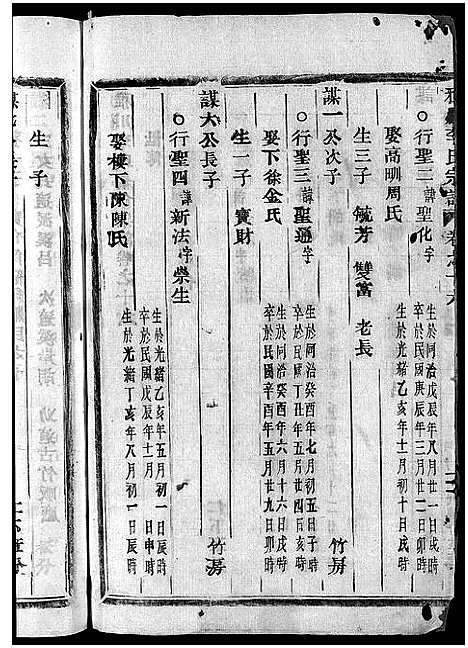 ○行聖二 諱聖化 字
生於同治戊辰年八月廿一日戌時
卒於民國庚辰年三月廿二日卯時
娶高畈周氏
生於光緒乙亥年十一月初十日戌時
生三子 毓芳 雙富 老長
謀一公次子 竹房
○行聖三 諱聖通 字
生於同治癸酉年七月初五日子時
卒於民國丁丑年五月廿四日亥時
娶下徐金氏
生於同治癸酉年六月十六日戌時
卒於民國辛酉年五月廿九日卯時
生一子 寶財
謀大公長子 竹房
○行聖四 諱新法 字榮生
生於光緒乙亥年五月初一日辰時
卒於民國戊辰年十一月 日申時
娶樓下陳陳氏
生於光緒丁亥年八月初一日辰時
生子